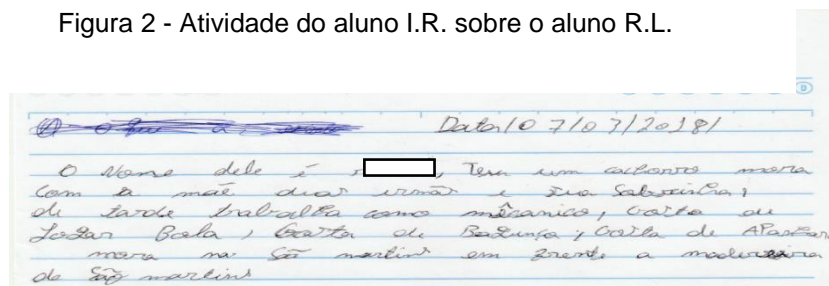 Figura 2 - Atividade do aluno I.R. sobre o aluno R.L.
Data/07/03/2018/
O Nome dele é, Tem um cachorro mora
com a mãe duas irmãs e sua Sobrinha,
de tarde trabalha como mêcanico, Gosta de
Jogar Bola, Gosta de Bagunça, Gosta de
mora na São martins em frente a madereira
de São martins